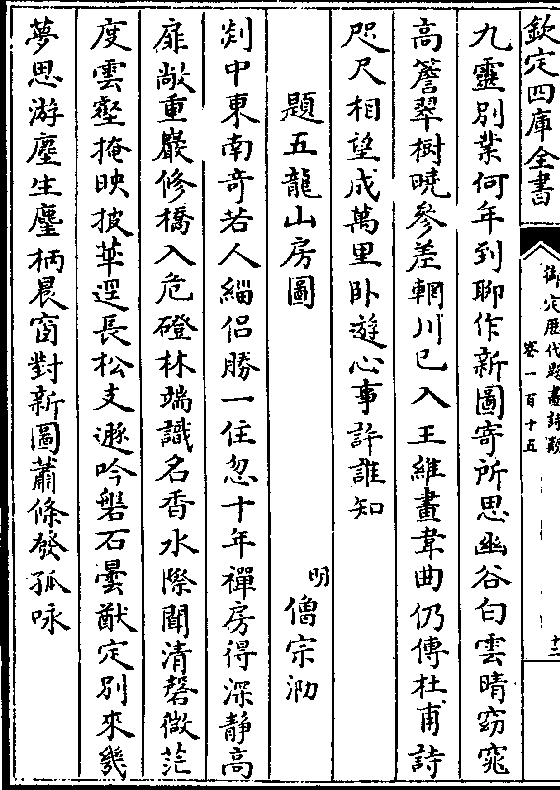 欽定四庫全書
御定歷代題畫詩類
卷一百十五
十二
九靈別業何年到聊作新圖寄所思幽谷白雲晴窈窕
高簷翠樹曉參差輞川已入王維畫韋曲仍傳杜甫詩
咫尺相望成萬里卧遊心事許誰知
題五龍山房圖
明 僧宗泐
剡中東南奇若人緇侶勝一住忽十年禪房得深靜高
扉敞重巖修橋入危磴林端識名香水際聞清磬微茫
度雲壑掩映披華逕長松支遜吟磐石曇猷定別來幾
夢思游塵生麈柄晨窗對新圖蕭條發孤咏